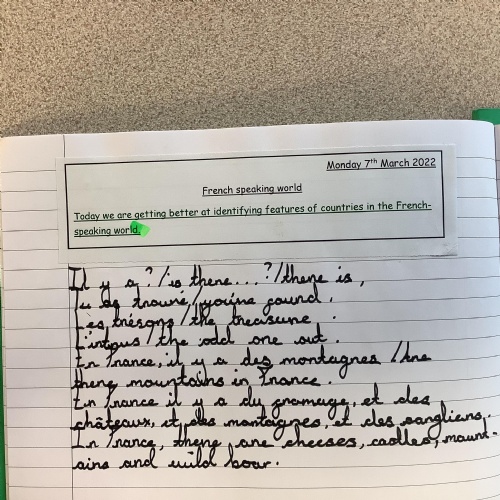 Monday 7th March 2022
French speaking world
Today we are getting better at identifying features of countries in the French-
speaking world.
Il y a?/is there...?/there is,
Tu as trouvé/you've found.
Les trésors/the treasure.
L'intrus/the odd one out.
En France, il y a des montagnes /Are
there mountains in France.
En France il y a du fromage, et des
châteaux, et des montagnes, et des sangliers.
In France, there are cheeses, castles, mount-
ains and wild boar.